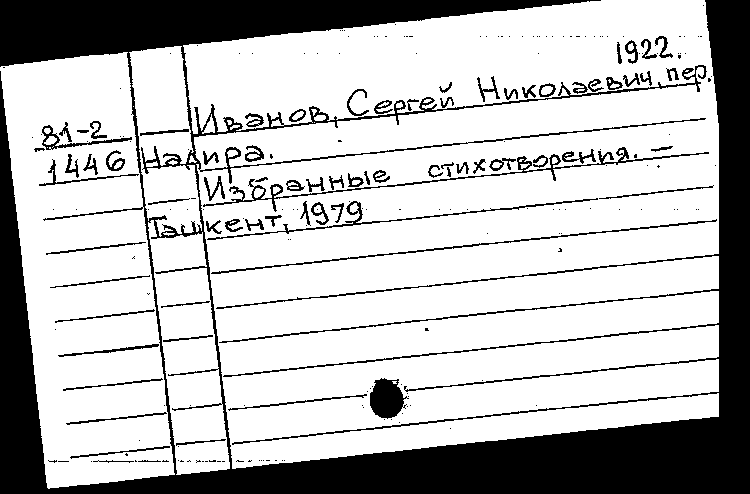 1922.
Иванов, Сергей Николаевич, пер.
81-2
1446 Надира.
Избранные стихотворения. —
Ташкент, 1979